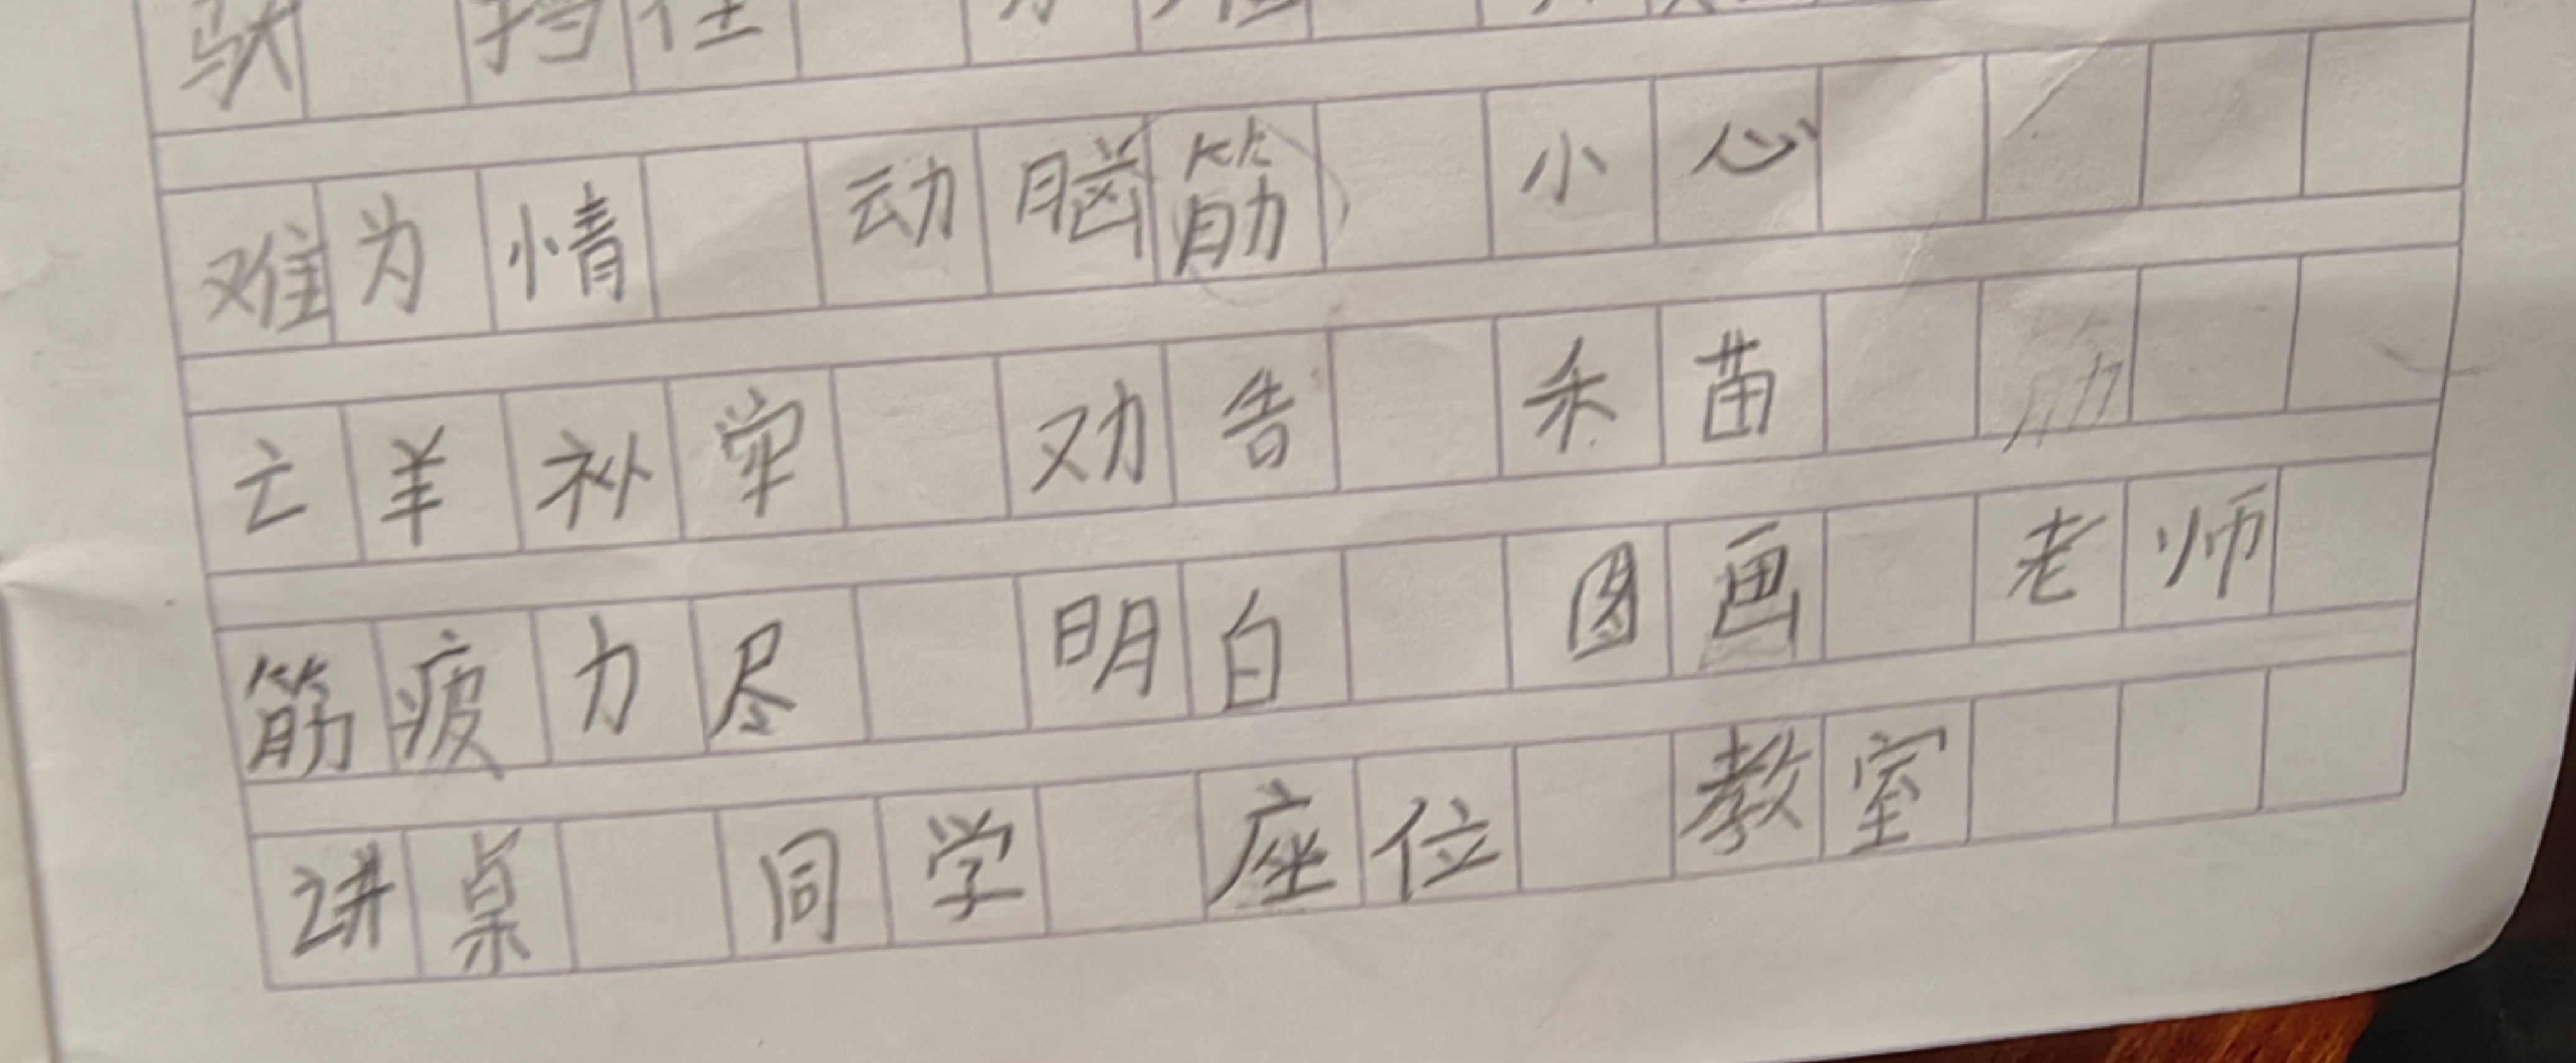 驮 挡住
难为情 动脑筋 小心
亡羊补牢 劝告 禾苗
筋疲力尽 明白 图画 老师
讲桌 同学 座位 教室